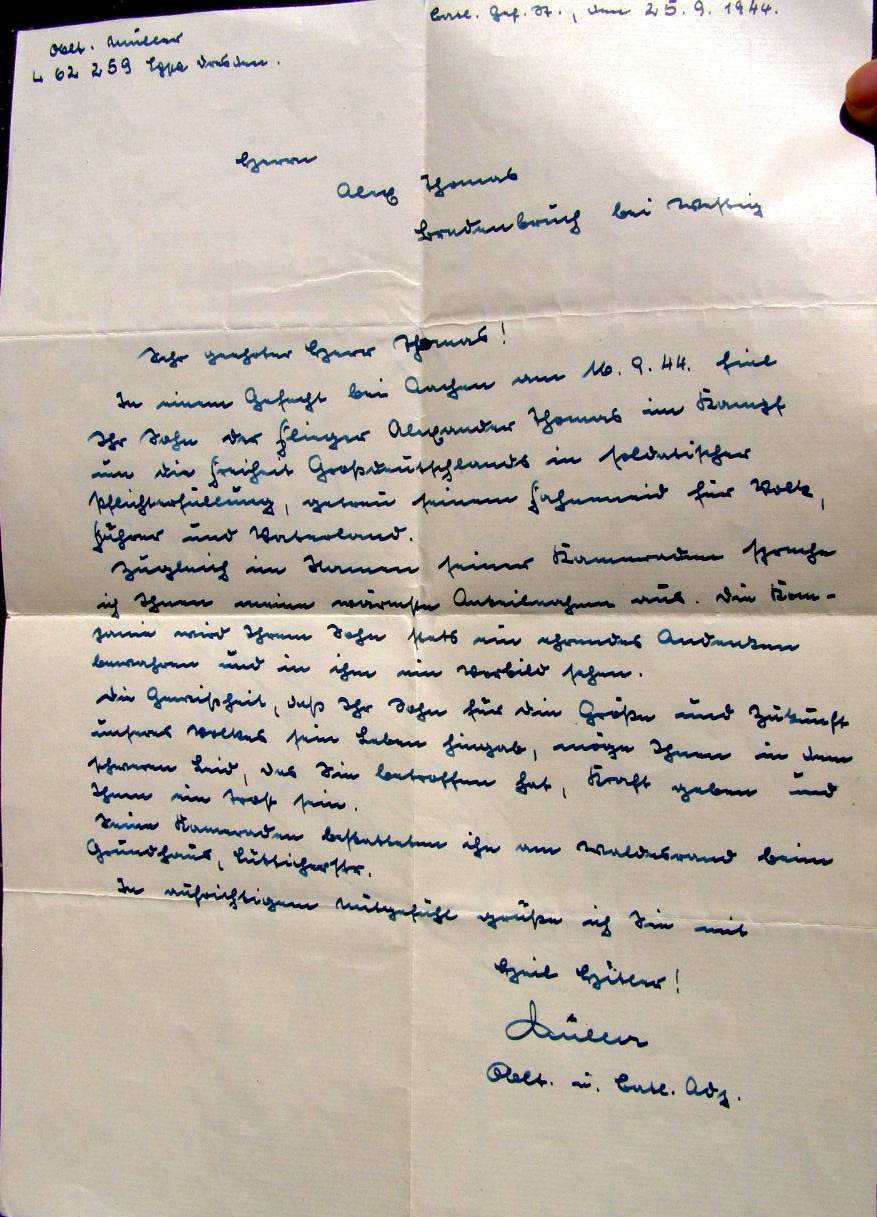 Batl. Gef. St., den 25.9.1944.
Oblt. Müller
L 62 259 Lgpa Dresden.
Herrn
Alex Thomas
Bredenbruch bei Westig
Sehr geehrter Herr Thomas!
In einem Gefecht bei Aachen am 16.9.44. fiel
Ihr Sohn der Flieger Alexander Thomas im Kampf
um die Freiheit Großdeutschlands in soldatischer
Pflichterfüllung, getreu seinem Fahneneid für Volk,
Führer und Vaterland.
Zugleich im Namen seiner Kameraden spreche
ich Ihnen meine wärmste Anteilnahme aus. Die Kom-
panie wird Ihrem Sohn stets ein ehrendes Andenken
bewahren und in ihm ein Vorbild sehen.
Die Gewißheit, daß Ihr Sohn für die Größe und Zukunft
unseres Volkes sein Leben hingab, möge Ihnen in dem
schweren Leid, das Sie betroffen hat, Kraft geben und
Ihnen ein Trost sein.
Seine Kameraden bestatteten ihn am Waldesrand beim
Grundhaus, Lütticherstr.
In aufrichtigem Mitgefühl grüße ich Sie mit
Heil Hitler!
Müller
Oblt. u. Batl. Adj.